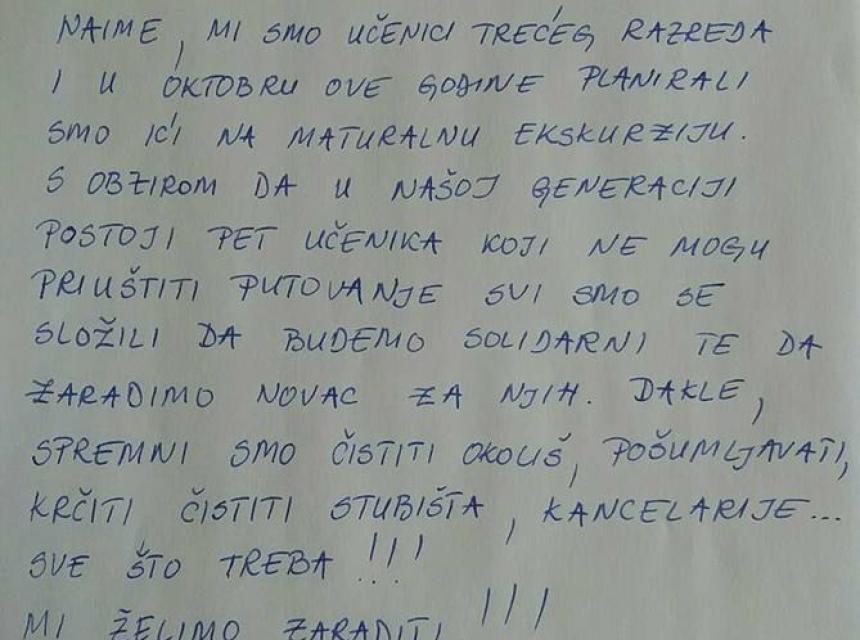 NAIME, MI SMO UČENICI TREĆEG RAZREDA
I U OKTOBRU OVE GODINE PLANIRALI
SMO IĆI NA MATURALNU EKSKURZIJU.
S OBZIROM DA U NAŠOJ GENERACIJI
POSTOJI PET UČENIKA KOJI NE MOGU
PRIUŠTITI PUTOVANJE SVI SMO SE
SLOŽILI DA BUDEMO SOLIDARNI TE DA
ZARADIMO NOVAC ZA NJIH. DAKLE,
SPREMNI SMO ČISTITI OKOLIŠ, POŠUMLJAVATI,
KRČITI ČISTITI STUBIŠTA, KANCELARIJE...
SVE ŠTO TREBA!!!
MI ŽELIMO ZARADITI!!!